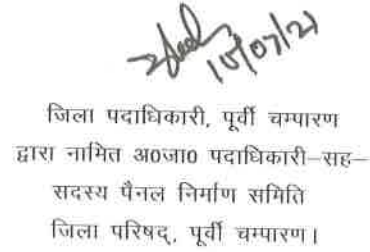 15/07/21
जिला पदाधिकारी, पूर्वी चम्पारण
द्वारा नामित अ0जा0 पदाधिकारी–सह–
सदस्य पैनल निर्माण समिति
जिला परिषद्, पूर्वी चम्पारण।